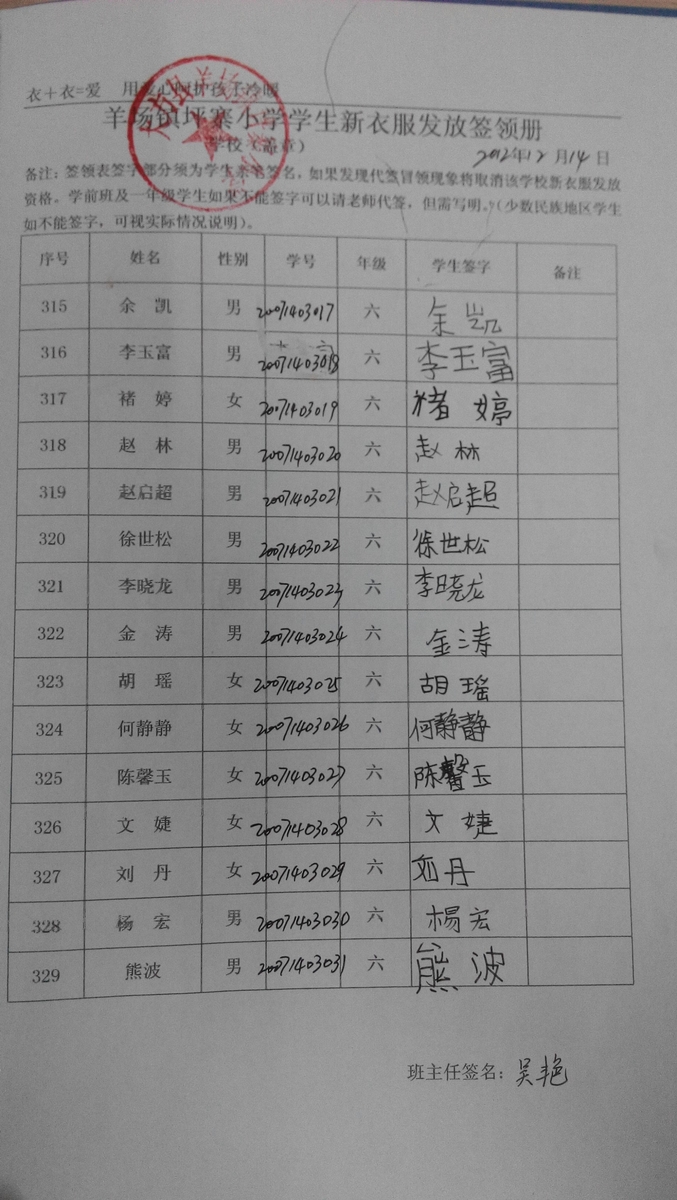 衣+衣=爱 用爱心呵护孩子冷暖
羊场镇坪寨小学学生新衣服发放签领册
学校(盖章) 2012年12月14日
备注:签领表签字部分须为学生亲笔签名,如果发现代签冒领现象将取消该学校新衣服发放
资格。学前班及一年级学生如果不能签字可以请老师代签,但需写明。(少数民族地区学生
如不能签字,可视实际情况说明)。
序号 姓名 性别 学号 年级 学生签字 备注
315 余 凯 男 20071403017 六 余凯
316 李玉富 男 20071403018 六 李玉富
317 褚 婷 女 20071403019 六 褚婷
318 赵 林 男 20071403020 六 赵林
319 赵启超 男 20071403021 六 赵启超
320 徐世松 男 20071403022 六 徐世松
321 李晓龙 男 20071403023 六 李晓龙
322 金 涛 男 20071403024 六 金涛
323 胡 瑶 女 20071403025 六 胡瑶
324 何静静 女 20071403026 六 何静静
325 陈馨玉 女 20071403027 六 陈馨玉
326 文 婕 女 20071403028 六 文婕
327 刘 丹 女 20071403029 六 刘丹
328 杨 宏 男 20071403030 六 杨宏
329 熊波 男 20071403031 六 熊波
班主任签名:吴艳